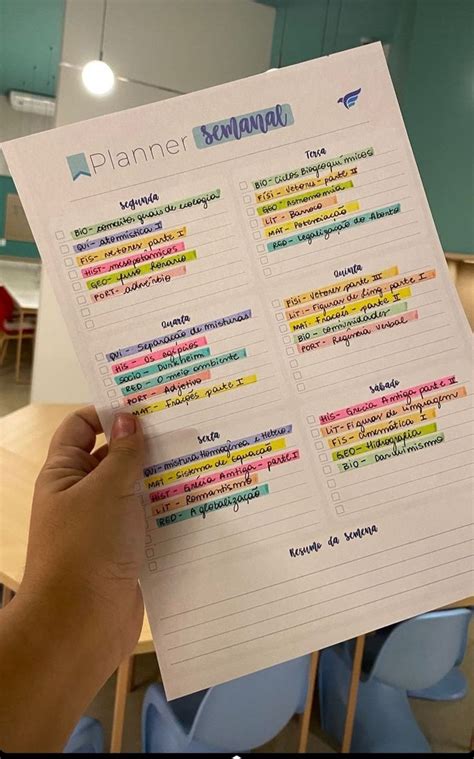 Planner semanal
Segunda
BIO- conceitos gerais de ecologia
QUI- atomística I
FIS- vetores parte I
HIST- mesopotâmicos
GEO- fuso horário
PORT- advérbio
Terça
BIO- Ciclos Biogeoquímicos
FISI- Vetores- parte II
GEO- Astronomia
LIT- Barroco
MAT- Potenciação
RED- Legalização do Aborto
Quarta
QUI- Separação de misturas
HIS- Os egípcios
SOCIO- Durkheim
RED- O meio ambiente
PORT- Adjetivo
MAT- Frações parte I
Quinta
FISI- Vetores parte III
LIT- Figuras de ling. parte I
MAT- Frações- parte II
BIO- comunidades
PORT- Regência verbal
Sexta
QUI- mistura Homogênea e Hetero
MAT- Sistema de Equação
HIST- Grécia Antiga- parte I
LIT- Romantismo
RED- A globalização
Sábado
HIS- Grécia Antiga parte II
LIT- Figuras de linguagem
FIS- cinemática I
GEO- Hidrografia
BIO- Darwinismo
Resumo da semana